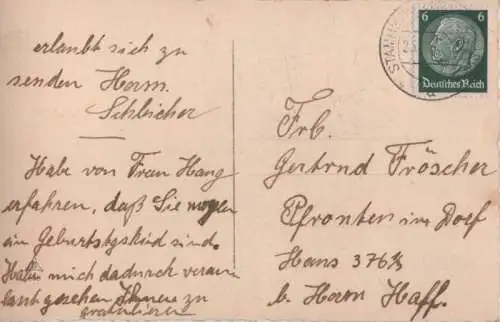 erlaubt sich zu
senden Herm.
Schleicher
Habe von Frau Hang
erfahren, daß Sie morgen
ein Geburtstgskind sind.
Habe mich dadurch veran
last gesehen Ihnen zu
gratulieren
6 6
Deutsches Reich
Frl.
Gertrud Fröscher
Pfronten im Dorf
Haus 376⅓
b. Herrn Haff.